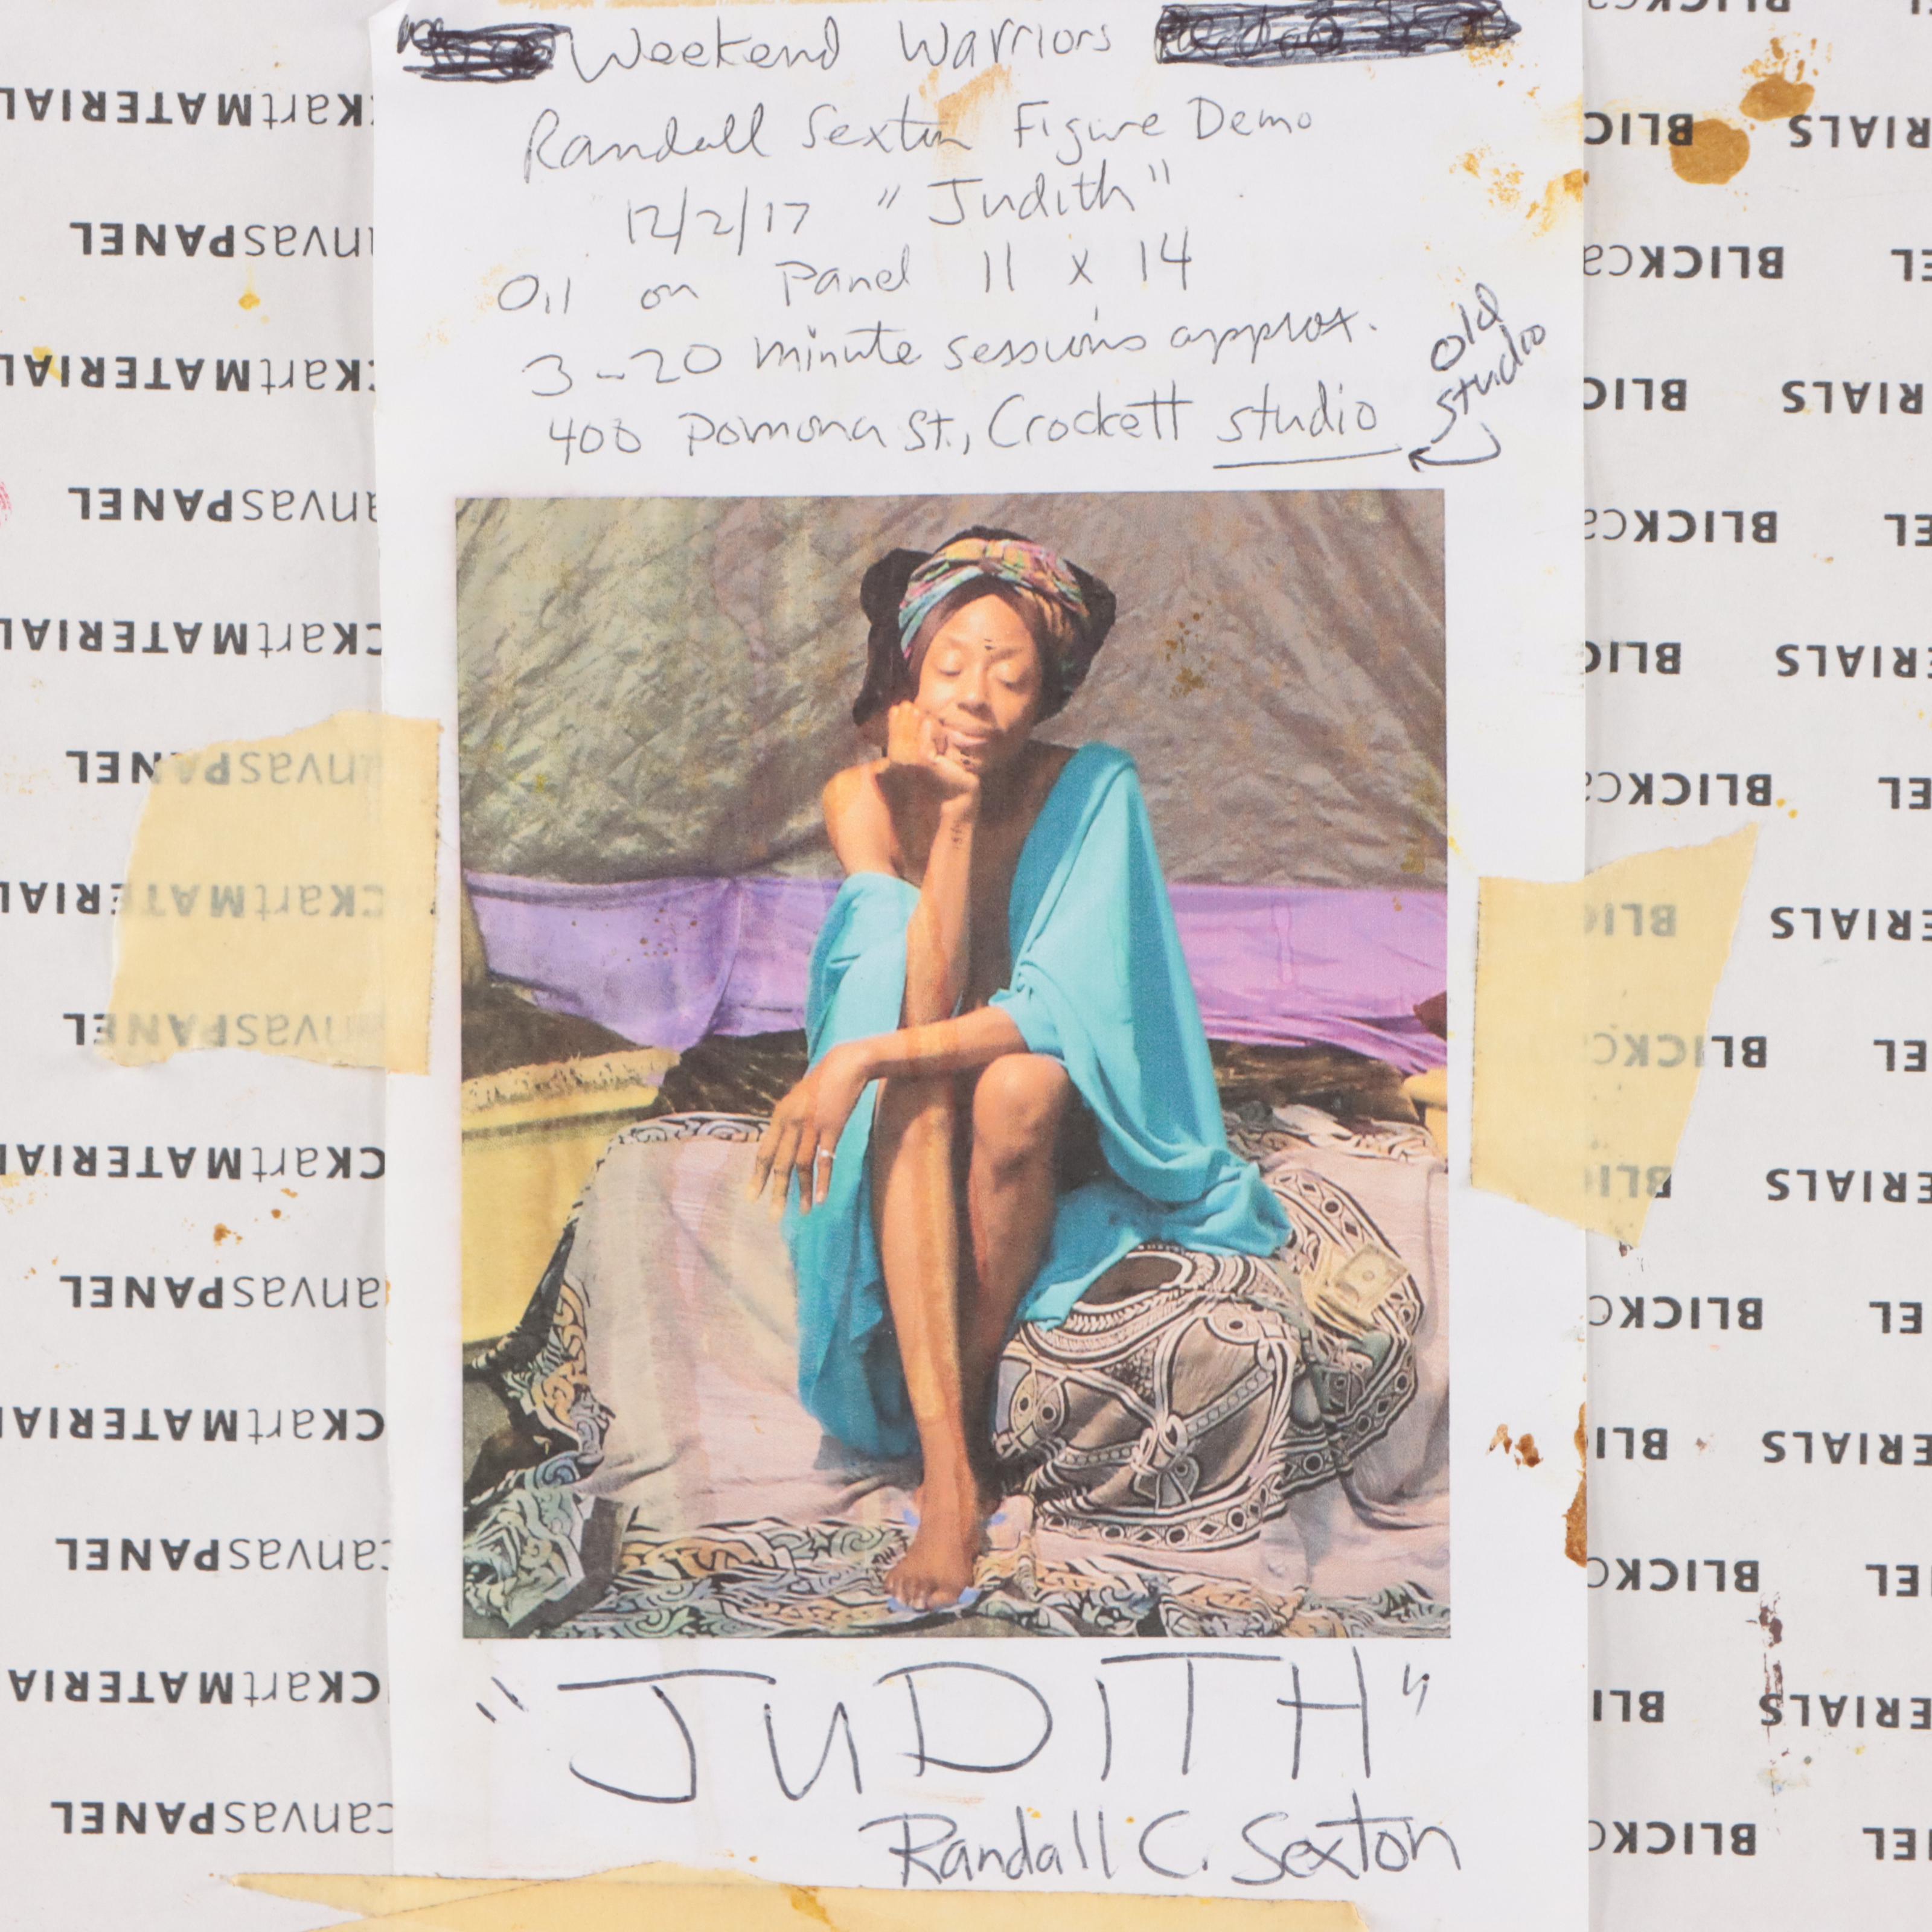 Weekend Warriors
Randall Sexton Figure Demo
12/2/17 "Judith"
Oil on Panel 11 x 14
3-20 minute sessions approx.
400 Pomona St., Crockett studio
old
studio
"JUDITH"
Randall C. Sexton
CKartMATERIAL
anvasPANEL
CKartMATERIAL
anvasPANEL
CKartMATERIAL
anvasPANEL
CKartMATERIAL
anvasPANEL
CKartMATERIAL
anvasPANEL
CKartMATERIAL
canvasPANEL
CKartMATERIA
canvasPANEL
BLICK
ERIALS BLIC
EL BLICKca
ERIALS BLIC
EL BLICKca
ERIALS BLIC
EL BLICKca
ERIALS BLIC
EL BLICKc
ERIALS BLIC
EL BLICKc
ERIALS BLI
EL BLICKc
ERIALS BLI
EL BLICKc